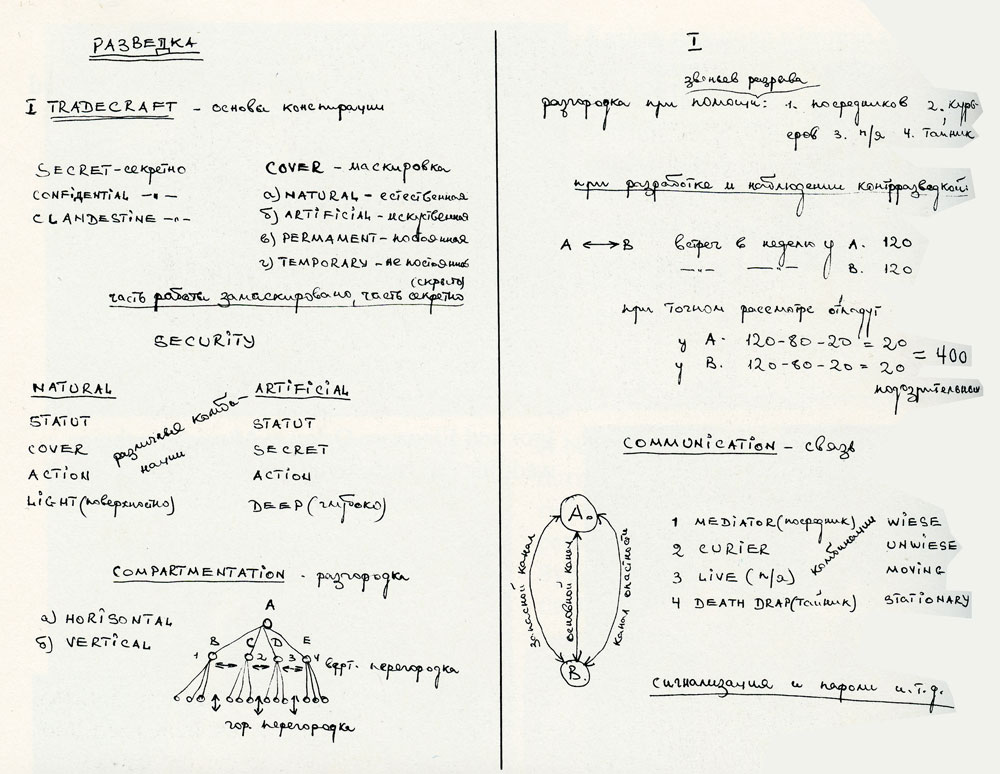 РАЗВЕДКА
I TRADECRAFT – основы конспирации
SECRET – секретно
CONFIDENTIAL –"–
CLANDESTINE –"–
COVER – маскировка
а) NATURAL – естественная
б) ARTIFICIAL – искуственная
в) PERMAMENT – постоянная
г) TEMPORARY – не постоянная
(скрыто)
часть работы замаскировано, часть секретно
SECURITY
NATURAL
STATUT
COVER
ACTION
LIGHT (поверхностно)
различные комби-
нации
ARTIFICIAL
STATUT
SECRET
ACTION
DEEP (глубоко)
COMPARTMENTATION - разгородка
а) HORISONTAL
б) VERTICAL
A
B C D E
1 2 3 4
верт. перегородка
гор. перегородка
I
звеньев разрыва
разгородка при помощи: 1. посредников 2. Курь-
еров 3. п/я 4. Тайник
при разработке и наблюдении контрразведкой:
A ⟷ B встреч в неделю у A. 120
–"– –"– B. 120
при точном рассмотре отпадут
у A. 120-80-20 = 20
у B. 120-80-20 = 20
= 400
подозрительных
COMMUNICATION – связь
A.
запасной канал
основной канал
канал опасности
B.
1 MEDIATOR (посредник)
2 CURIER
3 LIVE (п/я)
4 DEATH DRAP (тайник)
комбинации
WIESE
UNWIESE
MOVING
STATIONARY
сигнализация и пароли и.т.д.